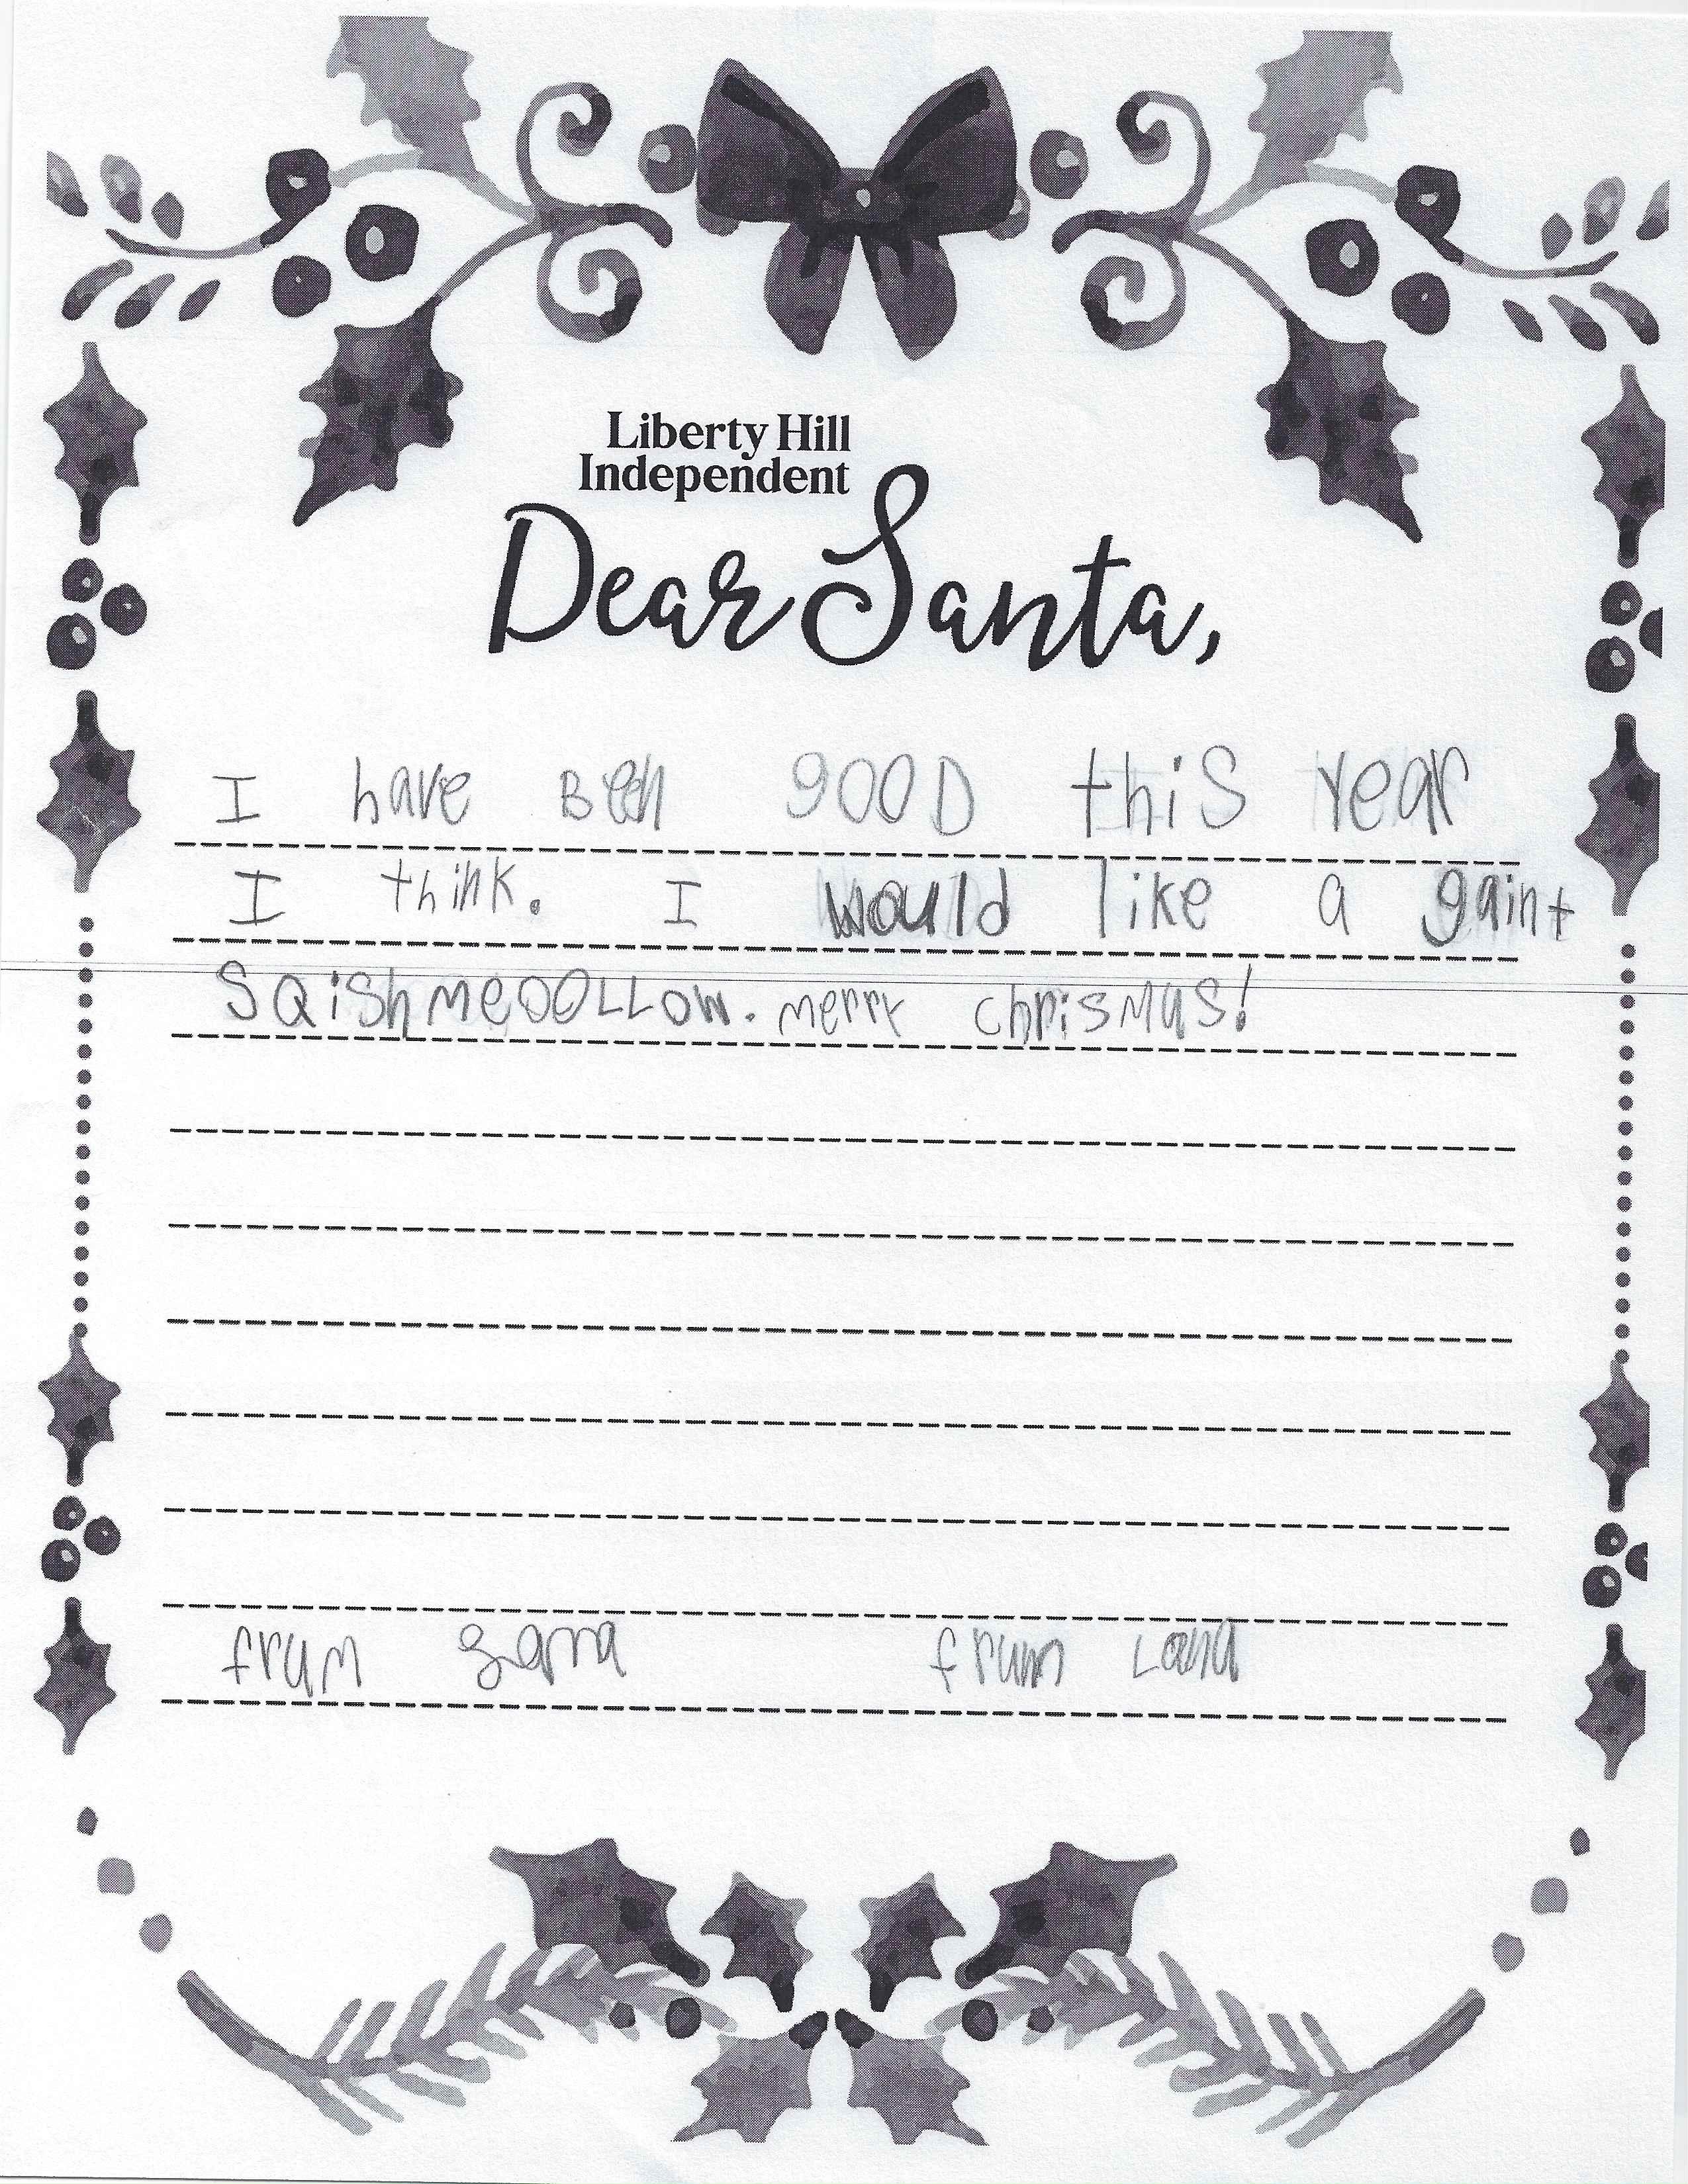 Liberty Hill
Independent
Dear Santa,
I have Been gooD this Year
I think. I would like a gaint
SQishmeoOLLOw. merry chrismas!
frum frum Lana